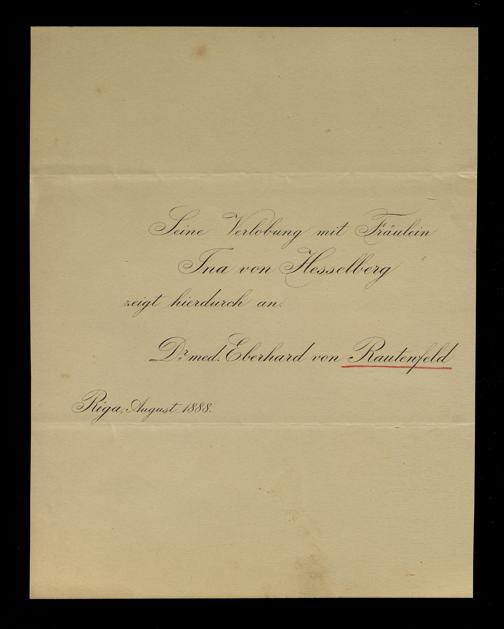 Seine Verlobung mit Fräulein
Ina von Hesselberg
zeigt hierdurch an.
Dr. med. Eberhard von Rautenfeld
Riga, August 1888.